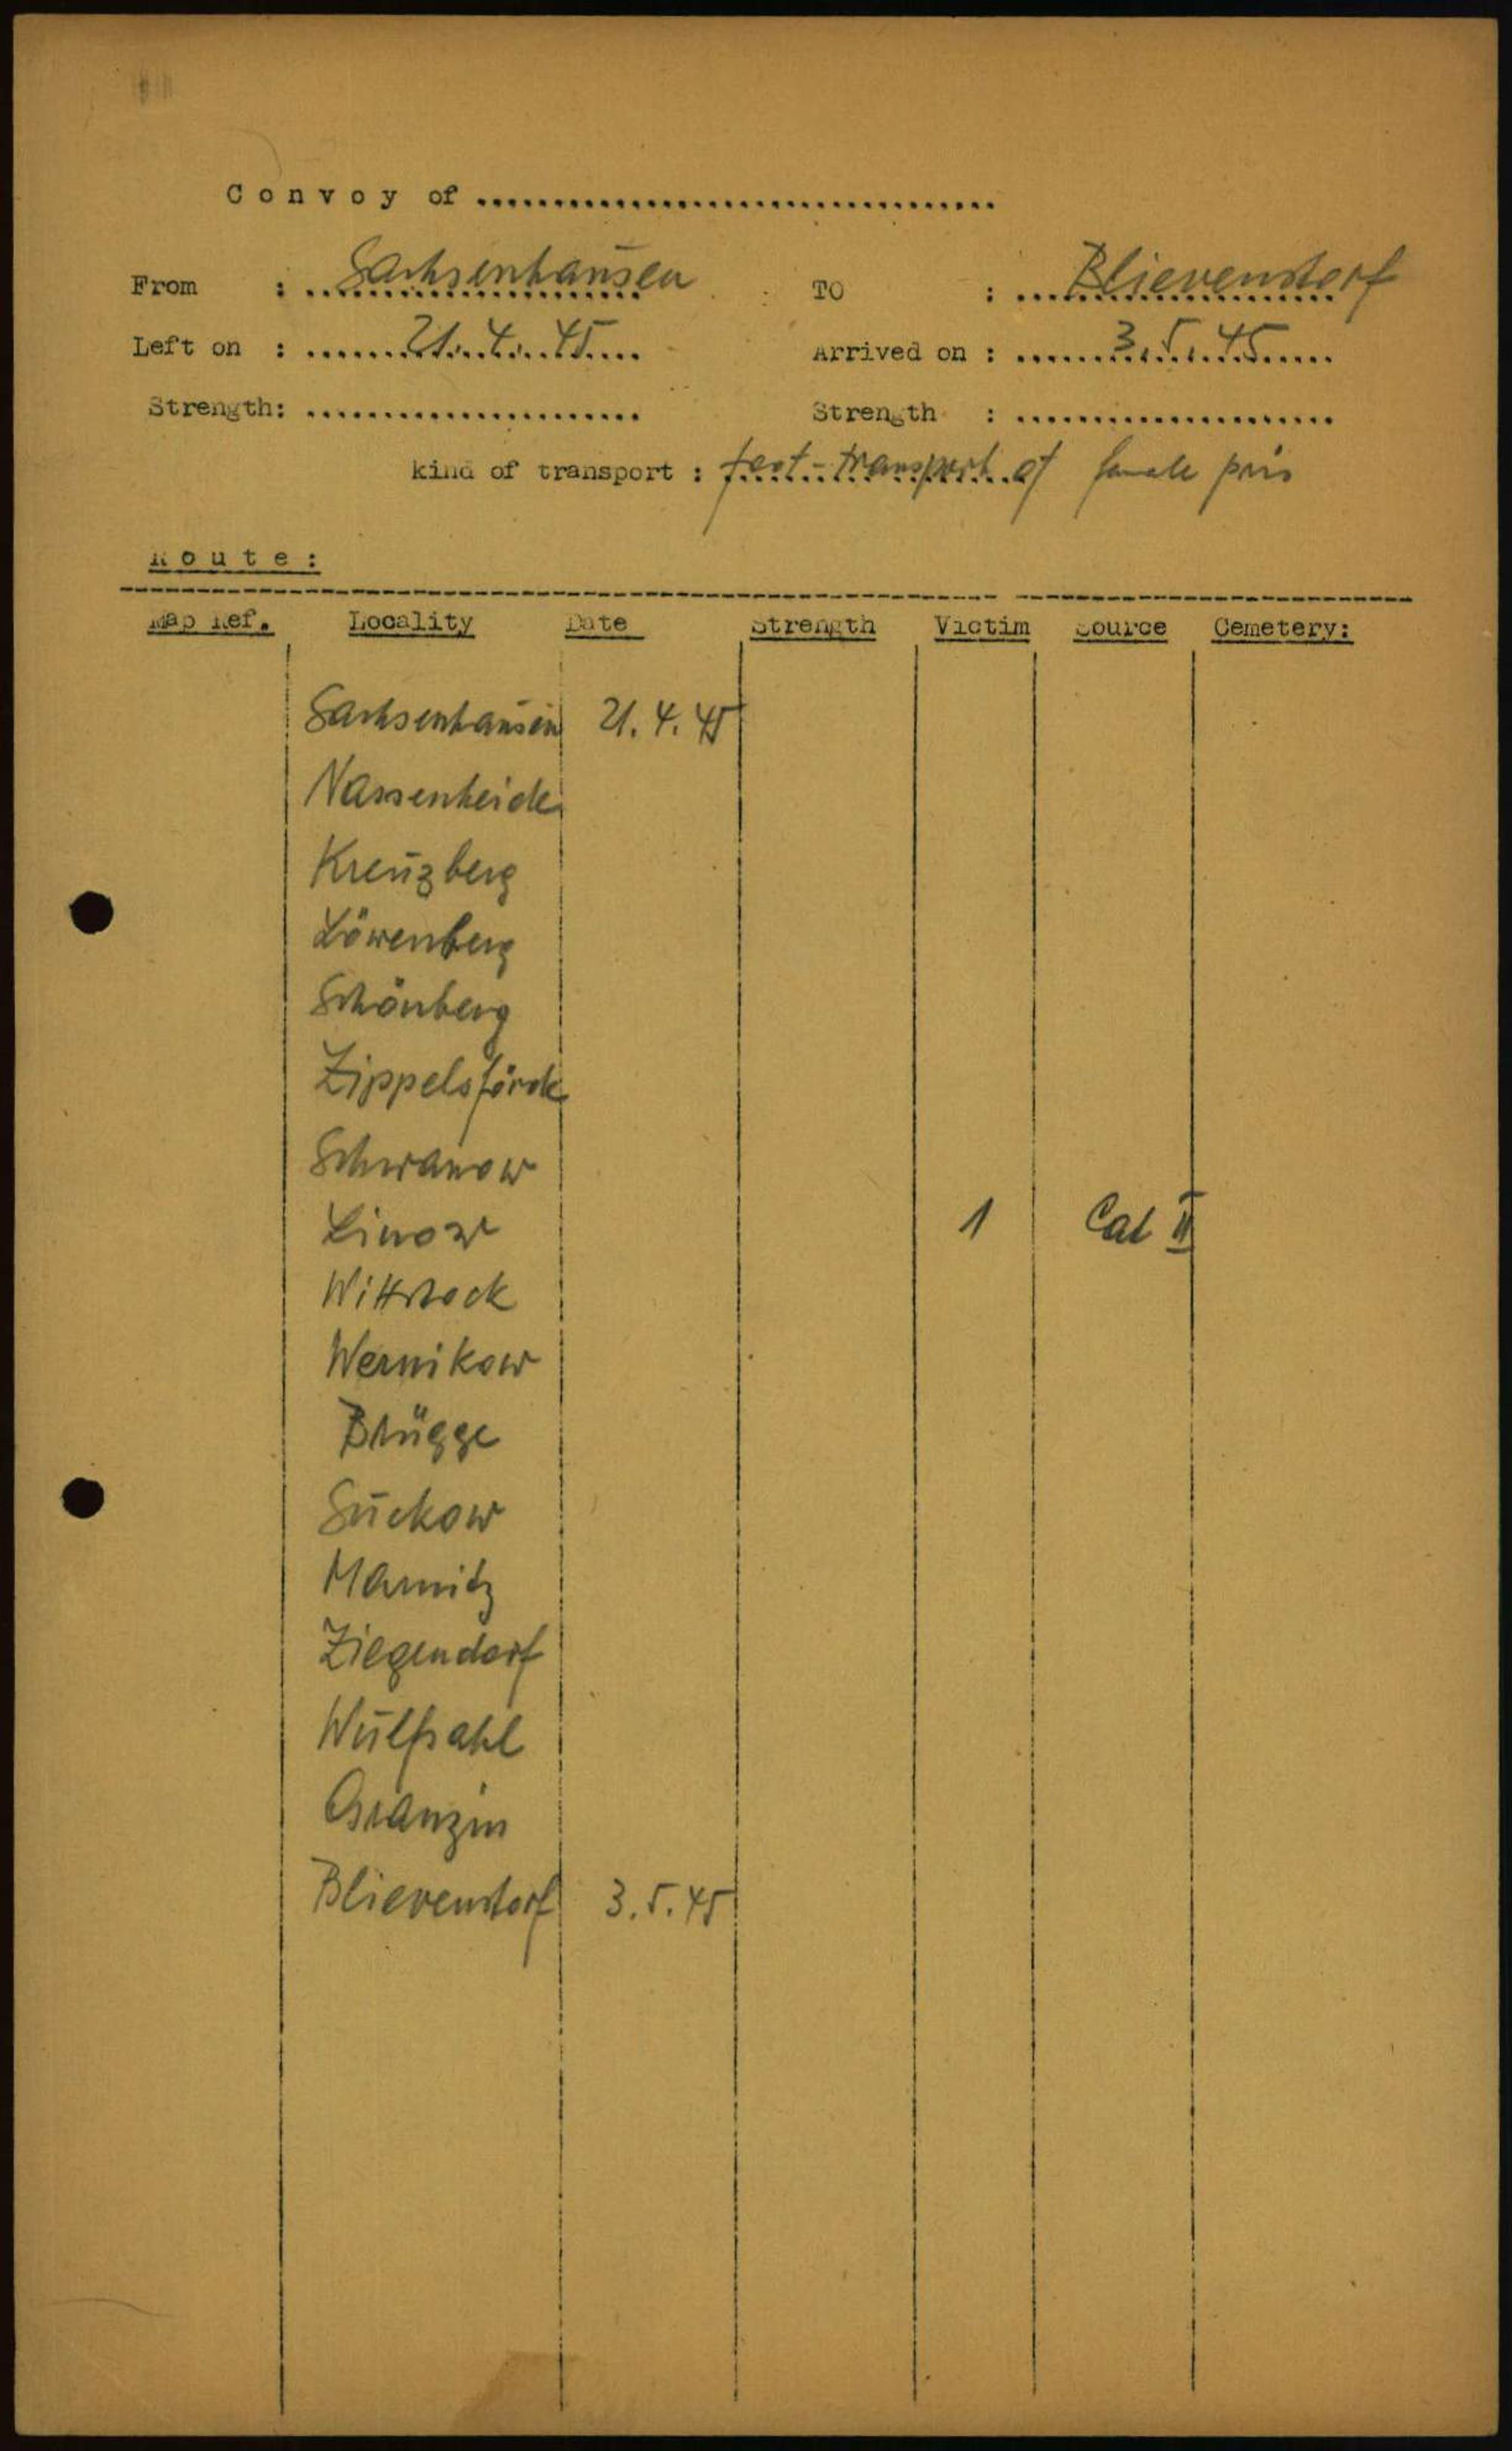 Convoy of ..................................
From : Sachsenhausen TO : Blievenstorf
Left on : 21. 4. 45 Arrived on : 3. 5. 45
Strength: ...................... Strength : .....................
kind of transport : foot-transport of female pris
Route:
Map Ref. Locality Date Strength Victim Source Cemetery:
Sachsenhausen 21. 4. 45
Nassenheide
Kreuzberg
Löwenberg
Schönberg
Zippelsförde
Schwanow
Linow 1 Cat II
Wittstock
Wernikow
Brügge
Suckow
Marnitz
Ziegendorf
Wulfsahl
Granzin
Blievenstorf 3. 5. 45